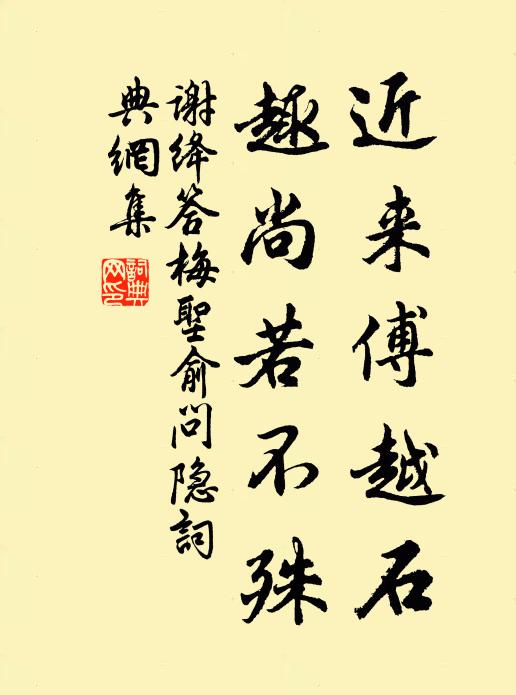 近来傅越石
趣尚若不殊
谢绛答梅聖俞问隐詞
典網集
詞典網印